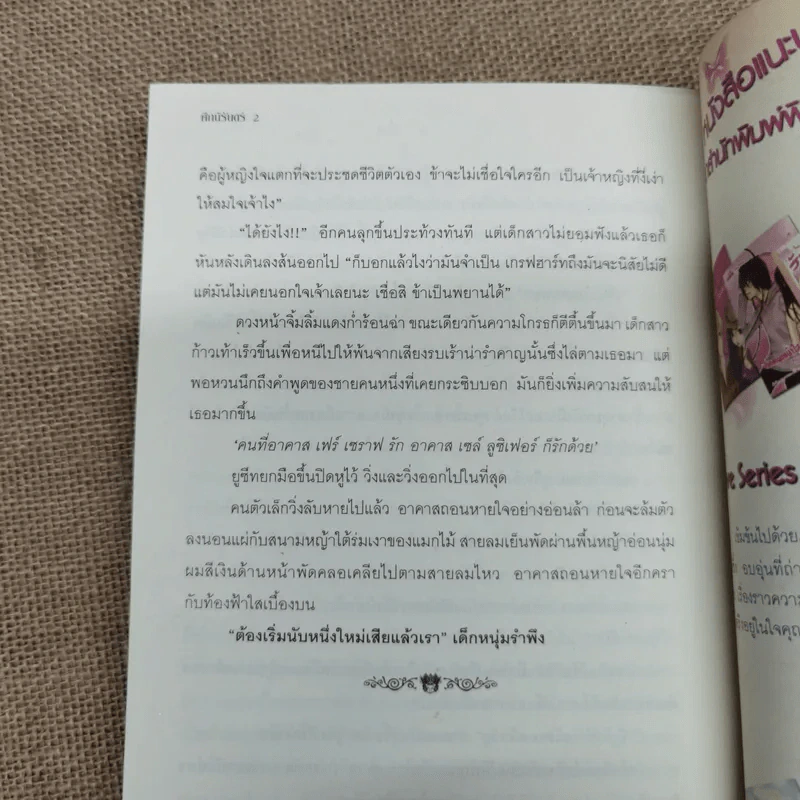 ศักนิรันตร์ 2
คือผู้หญิงใจแตกที่จะประชดชีวิตตัวเอง ข้าจะไม่เชื่อใจใครอีก เป็นเจ้าหญิงที่งี่เง่า
ให้สมใจเจ้าไง”
“ได้ยังไง!!” อีกคนลุกขึ้นประท้วงทันที แต่เด็กสาวไม่ยอมฟังแล้วเธอก็
หันหลังเดินลงส้นออกไป “ก็บอกแล้วไงว่ามันจำเป็น เกรฟฮาร์ทถึงมันจะนิสัยไม่ดี
แต่มันไม่เคยนอกใจเจ้าเลยนะ เชื่อสิ ข้าเป็นพยานได้”
ดวงหน้าจิ้มลิ้มแดงก่ำร้อนฉ่า ขณะเดียวกันความโกรธก็ตีตื้นขึ้นมา เด็กสาว
ก้าวเท้าเร็วขึ้นเพื่อหนีไปให้พ้นจากเสียงรบเร้าน่ารำคาญนั้นซึ่งไล่ตามเธอมา แต่
พอหวนนึกถึงคำพูดของชายคนหนึ่งที่เคยกระซิบบอก มันก็ยิ่งเพิ่มความสับสนให้
เธอมากขึ้น
‘คนที่อาคาส เฟร์ เซราฟ รัก อาคาส เซล์ ลูซิเฟอร์ ก็รักด้วย’
ยูซีทยกมือขึ้นปิดหูไว้ วิ่งและวิ่งออกไปในที่สุด
คนตัวเล็กวิ่งลับหายไปแล้ว อาคาสถอนหายใจอย่างอ่อนล้า ก่อนจะล้มตัว
ลงนอนแผ่กับสนามหญ้าใต้ร่มเงาของแมกไม้ สายลมเย็นพัดผ่านพื้นหญ้าอ่อนนุ่ม
ผมสีเงินด้านหน้าพัดคลอเคลียไปตามสายลมไหว อาคาสถอนหายใจอีกครา
กับท้องฟ้าใสเบื้องบน
“ต้องเริ่มนับหนึ่งใหม่เสียแล้วเรา” เด็กหนุ่มรำพึง
Series